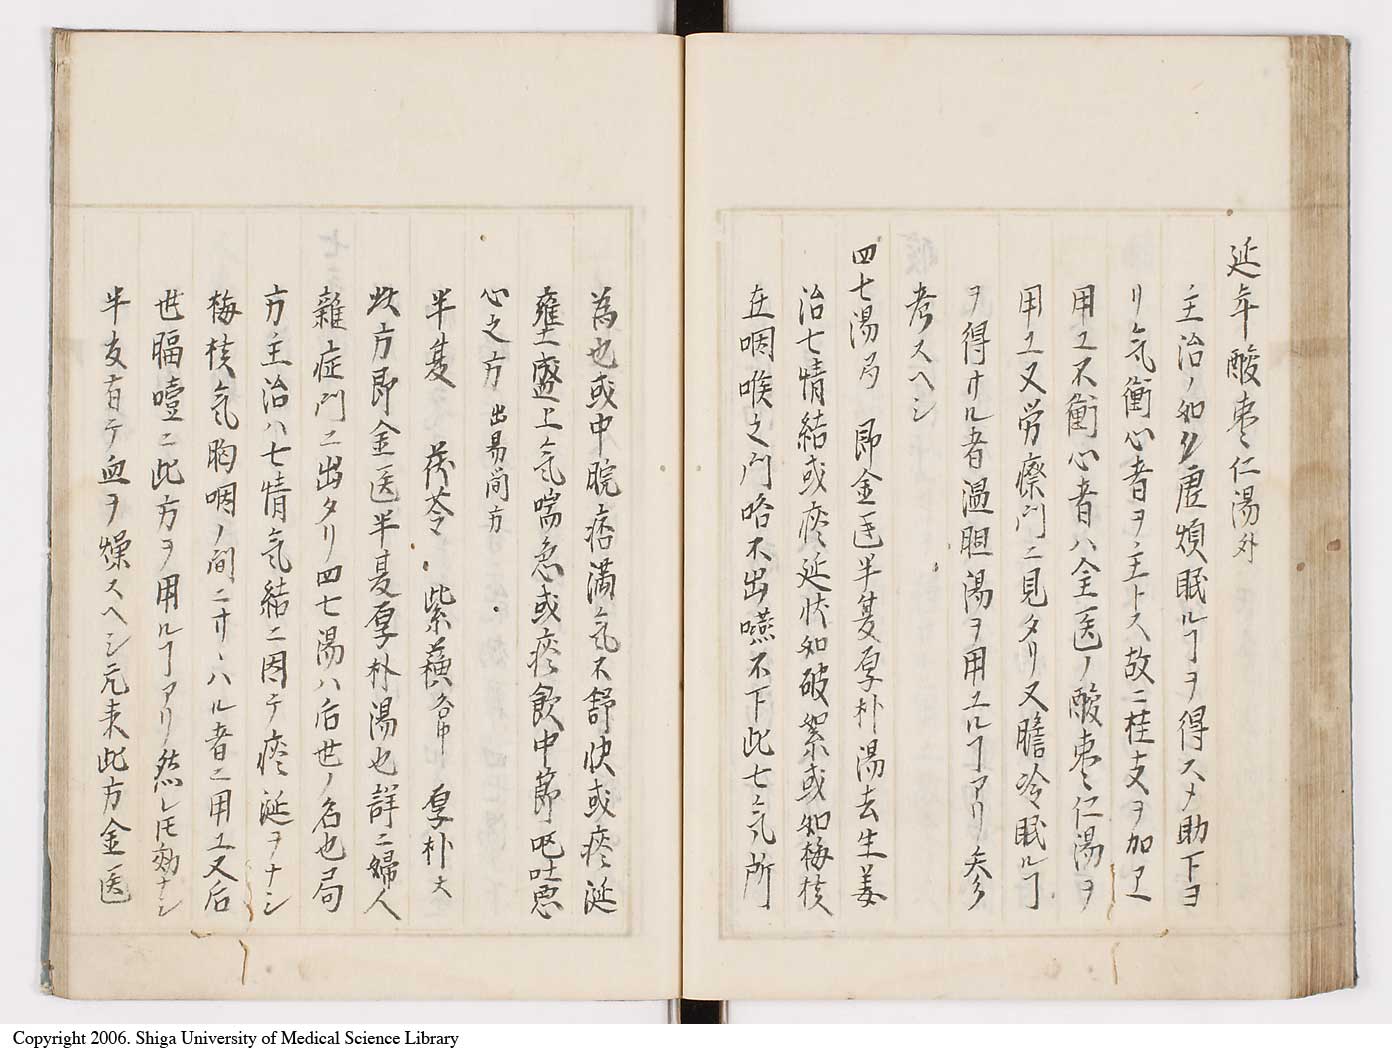 延年酸枣仁湯外
主治ノ如ク虚煩眠ルヿヲ得ス〆助下ヨ
リ気衝心者ヲ主トス故ニ桂支ヲ加ヱ
用ユ不衝心者ハ金医ノ酸枣仁湯ヲ
用ユ又労瘵門ニ見タリ又膽冷眠ルヿ
ヲ得サル者温胆湯ヲ用ユルヿアリ矣
考スヘシ
四七湯局 即金医半夏厚朴湯去生姜
治七情結或痰延状如破絮或如梅核
在咽喉之門咯不出嚥不下此七気所
為也或中脘痞満気不舒快或痰涎
壅盛上気喘急或痰飲中節呕吐悪
心之方 出易简方
半夏 茯苓 紫蘓各中 厚朴大
此方即金医半夏厚朴湯也詳ニ婦人
雜症門ニ出タリ四七湯ハ后世ノ名也局
方主治ハ七情気結ニ因テ痰涎ヲナシ
梅核気胸咽ノ间ニサハル者ニ用ユ又后
世膈噎ニ此方ヲ用ルヿアリ然レ𪜈効ナシ
半友有テ血ヲ燥スヘシ元来此方金医
Copyright 2006. Shiga University of Medical Science Library